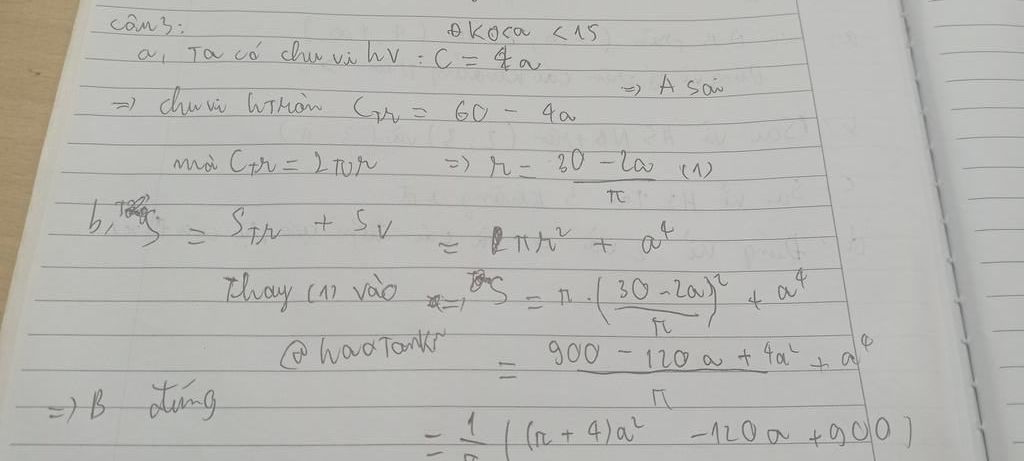 câu 3: ĐK 0<a <15
a, Ta có chu vi hV : C = 4a
=> A sai
=> chu vi hTròn Ctr = 60 - 4a
mà Ctr = 2πr => r = (30 - 2a)/π (1)
b, S = STr + SV = πr² + a⁴
Thay (1) vào => S = π . ((30 - 2a)/π)² + a⁴
@haoTankr = (900 - 120a + 4a²)/π + a⁴
=> B đúng
= 1/π ((π + 4)a² - 120a + 900)